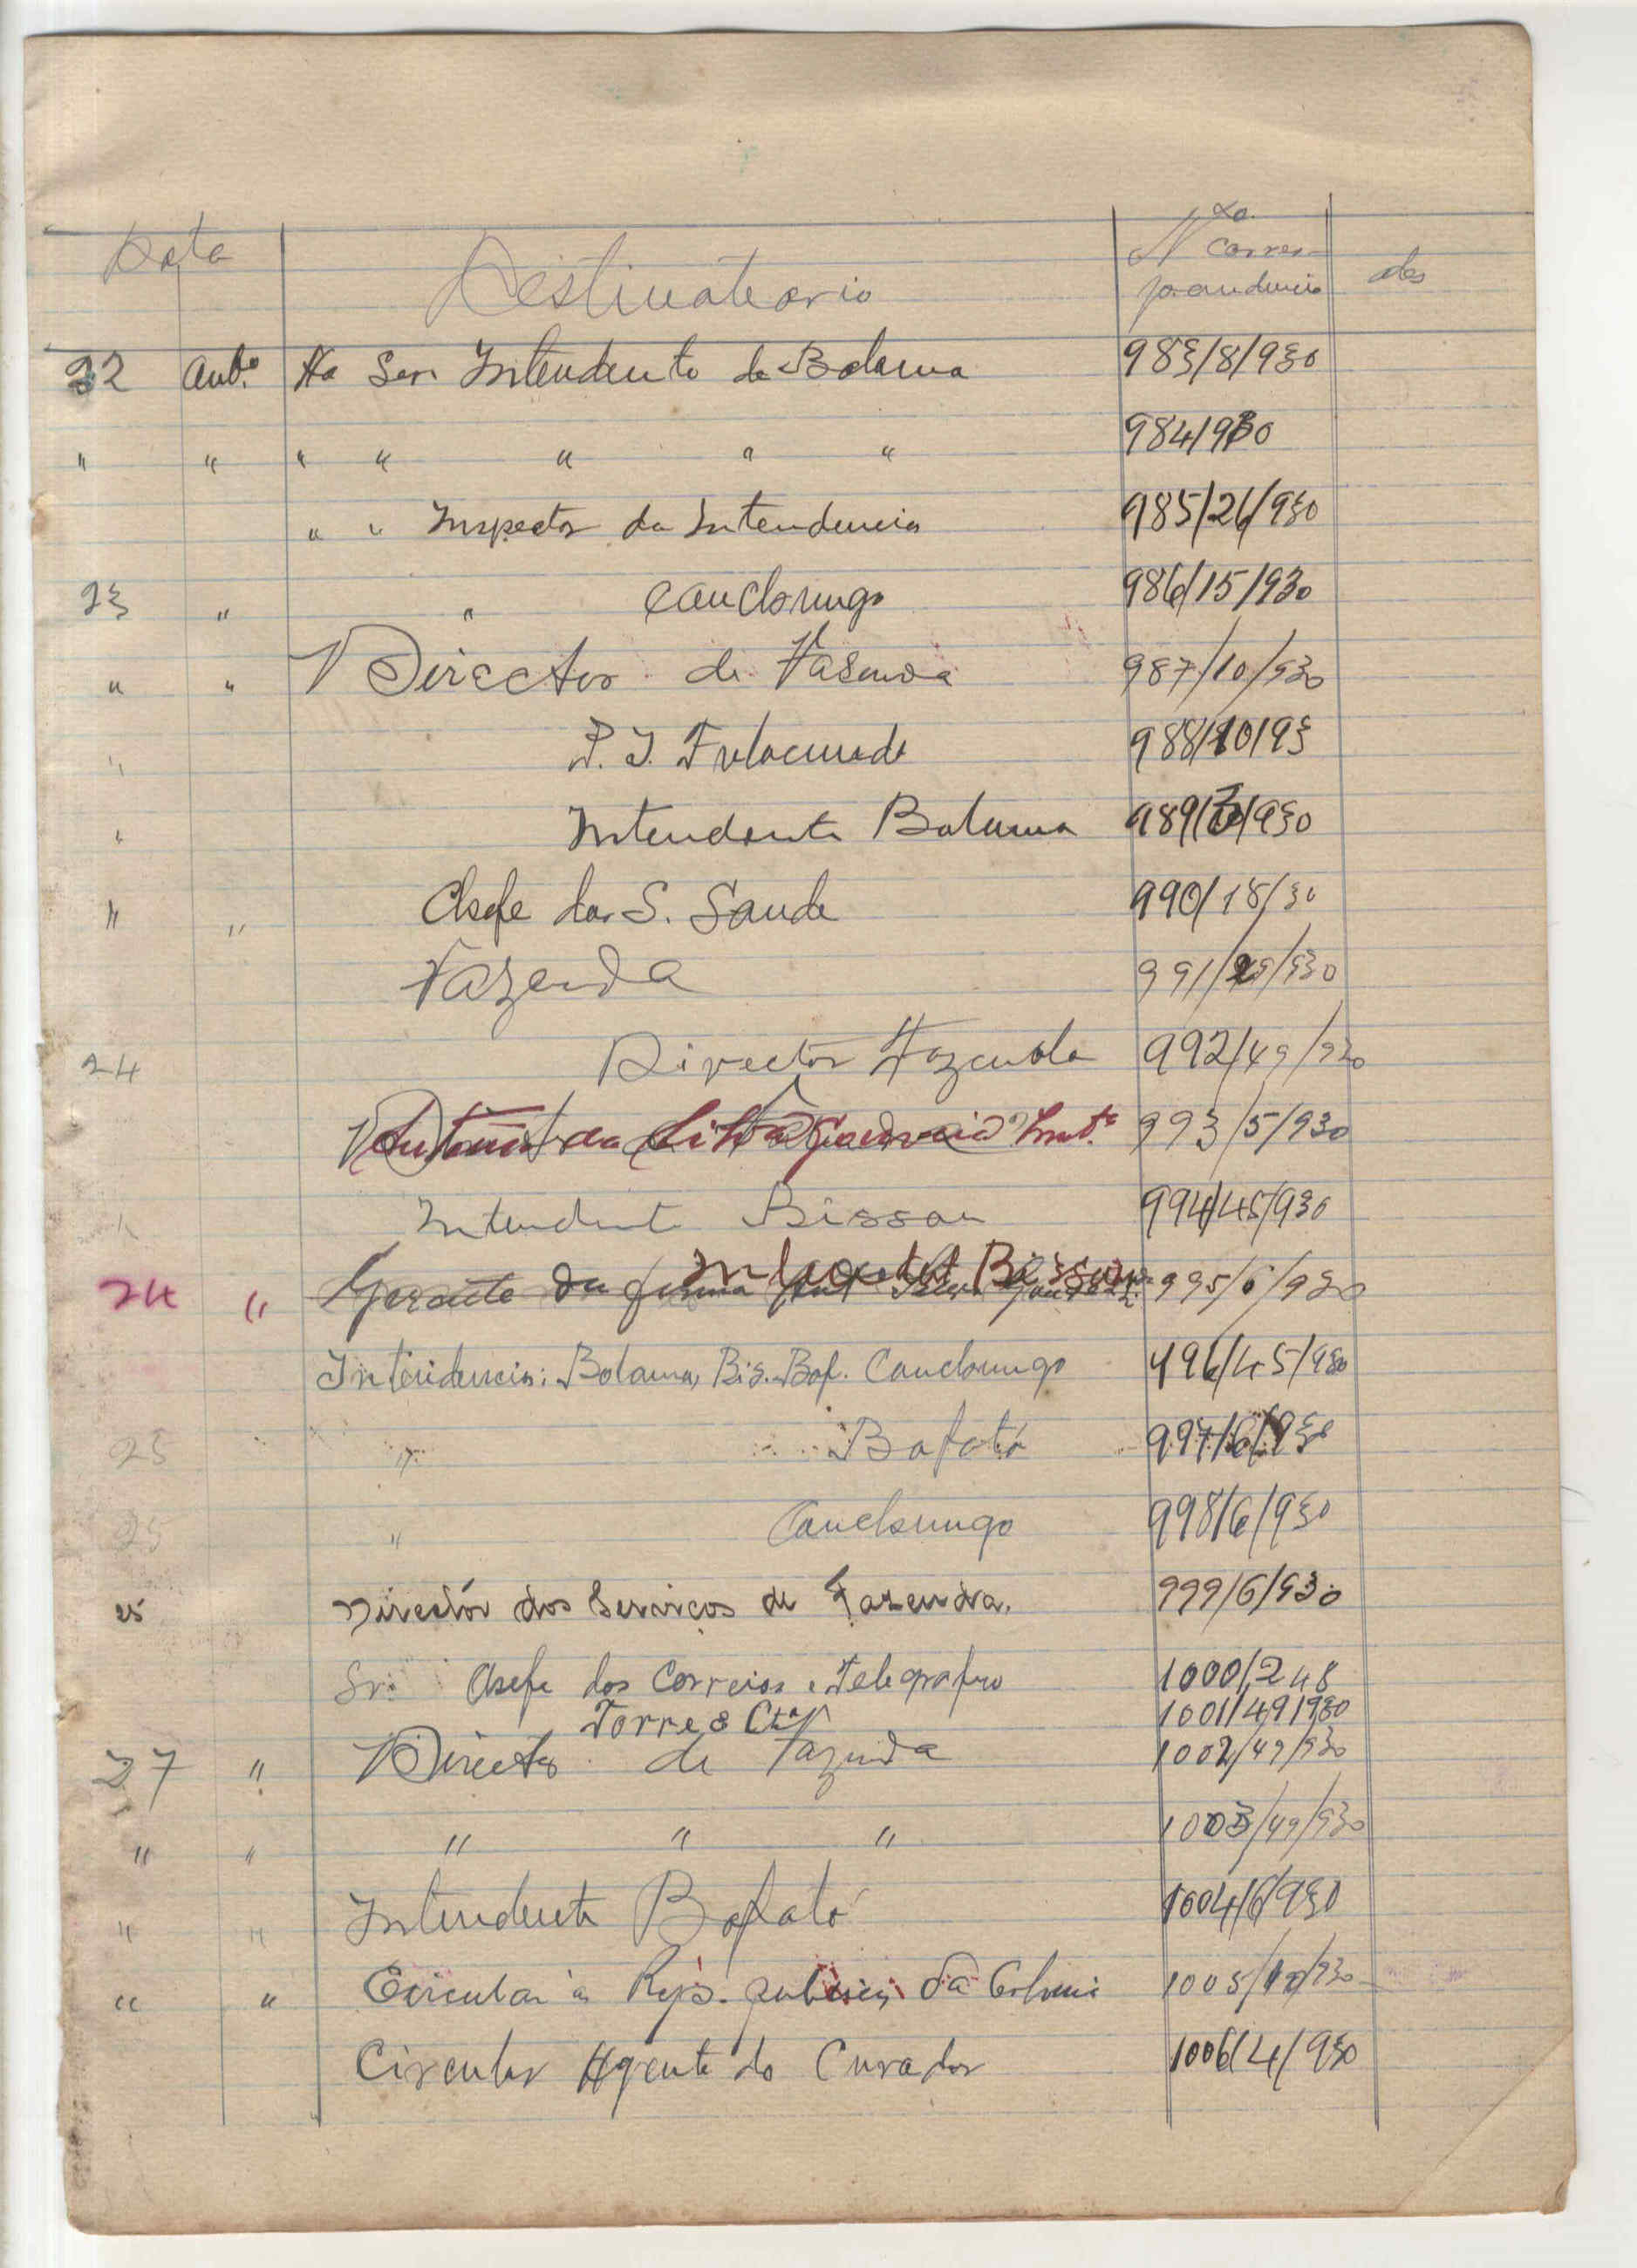 Data Destinatario Nº da corres-
pondencia obs
22 Outº Ao Snr. Intendente de Bolama 983/8/930
" " " " " " " 984/930
" " Inspector da Intendencia 985/26/930
23 " " Canchungo 986/15/930
" " Director de Fasenda 987/10/930
" Fulacunda 988/10/93
" Intendente Bolama 989/ /930
" " Chefe dos S. Saude 990/18/30
Fazenda 991/ /930
24 Director Fazenda 992/49/930
993/5/930
" Intendente Bissau 994/45/930
Bissau
24 " Gerente da firma 995/6/930
Intendencia: Bolama, Bis. Baf. Canchungo 996/45/930
25 " Bafatá 997/6/930
25 " Canchungo 998/6/930
25 Director dos Serviços de Fazenda. 999/6/930
Sr. Chefe dos Correios e Telegrafos 1000/248
Torres & Ctª 1001/49/930
27 " Director de Fazenda 1002/49/930
" " " " " 1003/49/930
" " Intendente Bafatá 1004/6/930
" " Circular às Reps. publicas da Colonia 1005/10/930
Circular Agente do Curador 1006/4/930